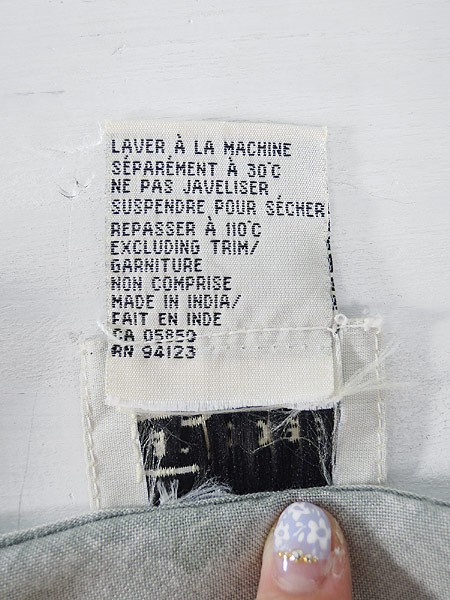 LAVER À LA MACHINE
SÉPARÉMENT À 30°C
NE PAS JAVELISER
SUSPENDRE POUR SÉCHER
REPASSER À 110°C
EXCLUDING TRIM/
GARNITURE
NON COMPRISE
MADE IN INDIA/
FAIT EN INDE
CA 05850
RN 94123